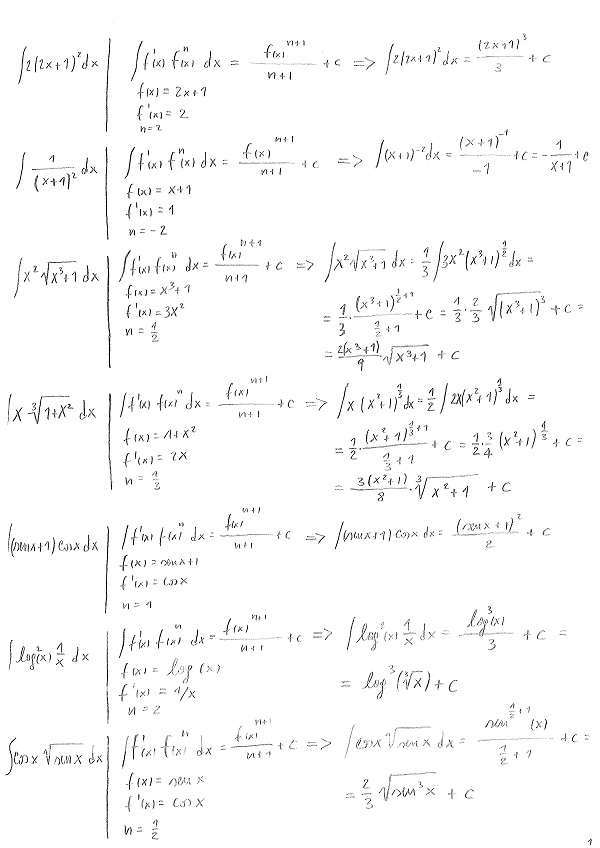 ∫2(2x+1)²dx | ∫f'(x) fⁿ(x) dx = f(x)ⁿ⁺¹/(n+1) + c => ∫2(2x+1)²dx = (2x+1)³/3 + c
f(x) = 2x+1
f'(x) = 2
n=2
∫ 1/(x+1)² dx | ∫f'(x) fⁿ(x) dx = f(x)ⁿ⁺¹/(n+1) + c => ∫(x+1)⁻²dx = (x+1)⁻¹/-1 + c = -1/(x+1) + c
f(x) = x+1
f'(x) = 1
n = -2
∫x²√(x³+1) dx | ∫f'(x) f(x)ⁿ dx = f(x)ⁿ⁺¹/(n+1) + c => ∫x²√(x³+1) dx = 1/3 ∫3x²(x³+1)^(1/2) dx =
f(x) = x³+1
f'(x) = 3x²
n = 1/2
= 1/3 · (x³+1)^(1/2+1)/(1/2+1) + c = 1/3 · 2/3 √(x³+1)³ + c =
= 2(x³+1)/9 · √(x³+1) + c
∫x · ∛(1+x²) dx | ∫f'(x) f(x)ⁿ dx = f(x)ⁿ⁺¹/(n+1) + c => ∫x (x²+1)^(1/3) dx = 1/2 ∫2x(x²+1)^(1/3) dx =
f(x) = 1+x²
f'(x) = 2x
n = 1/3
= 1/2 · (x²+1)^(1/3+1)/(1/3+1) + c = 1/2 · 3/4 (x²+1)^(1/3) + c =
= 3(x²+1)/8 · ∛(x²+1) + c
∫(sen x+1) cos x dx | ∫f'(x) f(x)ⁿ dx = f(x)ⁿ⁺¹/(n+1) + c => ∫(sen x+1) cos x dx = (sen x+1)²/2 + c
f(x) = sen x+1
f'(x) = cos x
n = 1
∫log²(x) 1/x dx | ∫f'(x) f(x)ⁿ dx = f(x)ⁿ⁺¹/(n+1) + c => ∫log²(x) 1/x dx = log³(x)/3 + c =
f(x) = log (x)
f'(x) = 1/x
n = 2
= log³(∛x) + c
∫cos x √(sen x) dx | ∫f'(x) f(x)ⁿ dx = f(x)ⁿ⁺¹/(n+1) + c => ∫cos x √(sen x) dx = sen^(1/2+1)(x)/(1/2+1) + c =
f(x) = sen x
f'(x) = cos x
n = 1/2
= 2/3 √(sen³x) + c